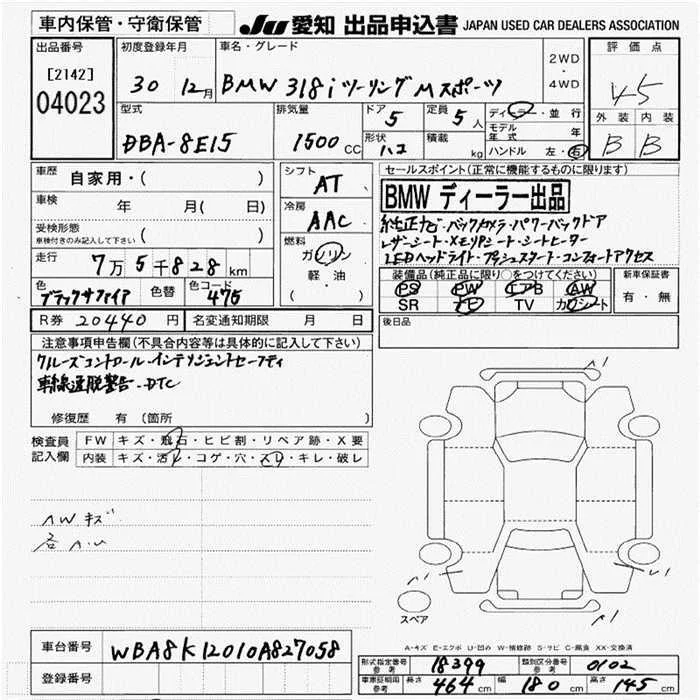 車内保管・守衛保管
JU 愛知 出品申込書 JAPAN USED CAR DEALERS ASSOCIATION
出品番号
[2142]
04023
初度登録年月
30 12月
車名・グレード
BMW 318i ツーリング Mスポーツ
2WD
・
4WD
評価点
45
外装 内装
B B
型式
DBA-8E15
排気量
1500 CC
ドア
5
形状
ハコ
定員
5 人
積載
kg
ディーラー・並行
モデル年式 年
ハンドル 左・右
車歴
自家用・( )
車検
年 月( 日)
受検形態
車検付きのみ記入して下さい ( )
走行
7万5千828km
色
ブラックサファイア
色替
色コード
475
シフト
AT
冷房
AAC
燃料
ガソリン
軽油
( )
セールスポイント(正常に機能するものに限ります)
BMW ディーラー出品
純正ナビ・バックカメラ・パワーバックドア
レザーシート・メモリーシート・シートヒーター
LEDヘッドライト・プッシュスタート・コンフォートアクセス
装備品(純正品に限り○をつけてください)
PS PW エアB AW
SR ナビ TV カワシート
新車保証書
有・無
R券 20440 円
名変通知期限 月 日
後日品
注意事項申告欄(不具合内容等は具体的に記入して下さい)
クルーズコントロール・インテリジェントセーフティ
車線逸脱警告・DTC
修復歴 有(箇所 )
検査員
記入欄
FW キズ・飛石・ヒビ割・リペア跡・X要
内装 キズ・汚れ・コゲ・穴・スレ・キレ・破レ
AWキズ
各A.U
A1
A1
A1
スペア
A-キズ E-エクボ U-凹み W-補修跡 S-サビ C-腐食 XX-交換済
車台番号 WBA8K12010A827058
登録番号
形式指定番号 参考 18399
類別区分番号 参考 0102
車庫証明用 参考 長さ 464 cm 幅 180 cm 高さ 145 cm